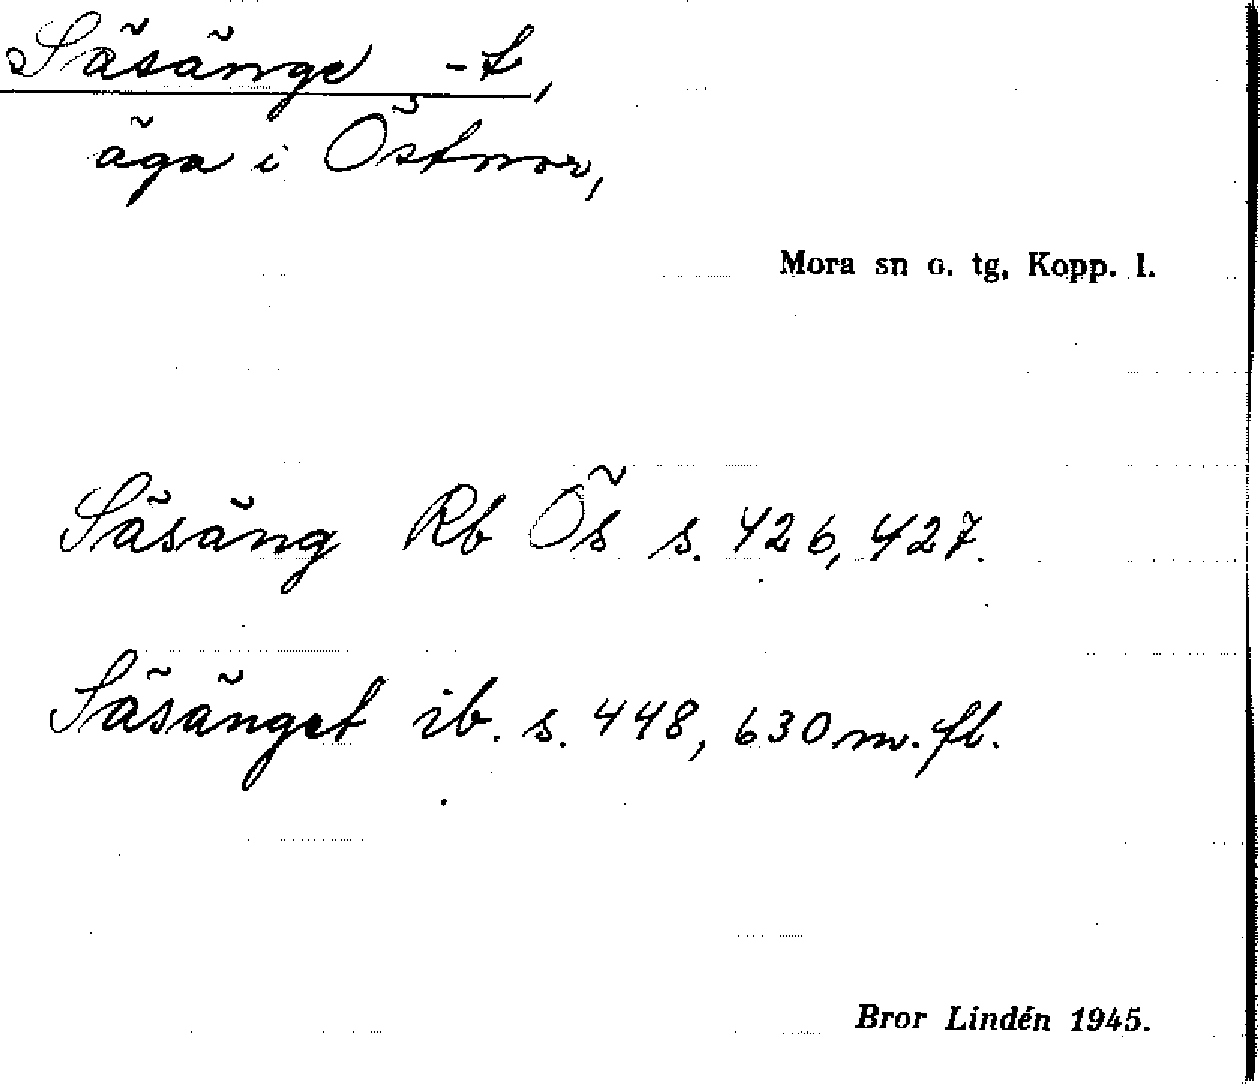 Säsänge -t,
äga i Östnor,
Mora sn o. tg, Kopp. l.
Säsäng Rb Ös s. 426, 427.
Säsänget ib. s. 448, 630 m. fl.
Bror Lindén 1945.